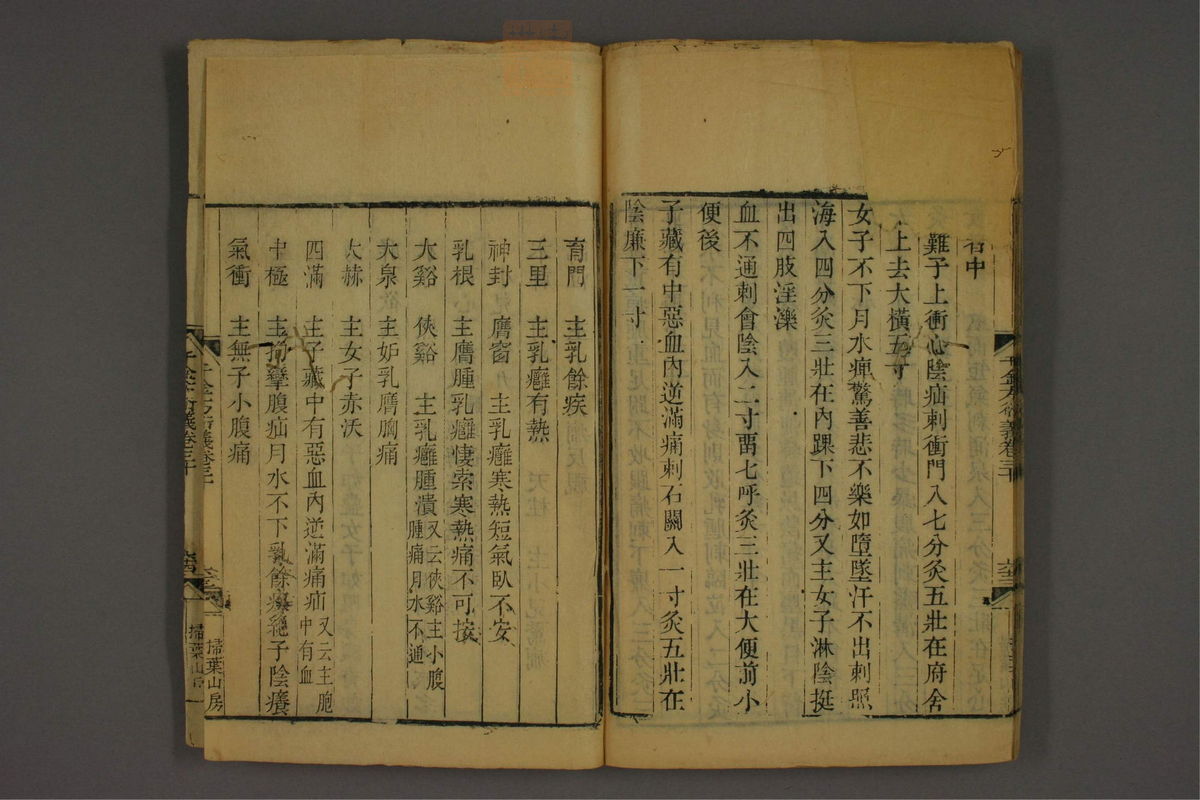 石中
難子上衝心陰疝刺衝門入七分灸五壯在府舍
上去大橫五寸
女子不下月水痺驚善悲不樂如墮墜汗不出刺照
海入四分灸三壯在內踝下四分又主女子淋陰挺
出四肢淫濼
血不通刺會陰入二寸畱七呼灸三壯在大便前小
便後
子藏有中惡血內逆滿痛刺石關入一寸灸五壯在
陰廉下一寸
千金方衍義卷三十
肓門 主乳餘疾
三里 主乳癰有熱
神封 膺窗 主乳癰寒熱短氣臥不安
乳根 主膺腫乳癰悽索寒熱痛不可按
大谿 俠谿 主乳癰腫潰又云俠谿主小腹腫痛月水不通
大泉 主妒乳膺胸痛
大赫 主女子赤沃
四滿 主子藏中有惡血內逆滿痛疝又云主胞中有血
中極 主拘攣腹疝月水不下乳餘疾絕子陰癢
氣衝 主無子小腹痛
千金方衍義卷三十
掃葉山房
千金方衍義卷三十
掃葉山房